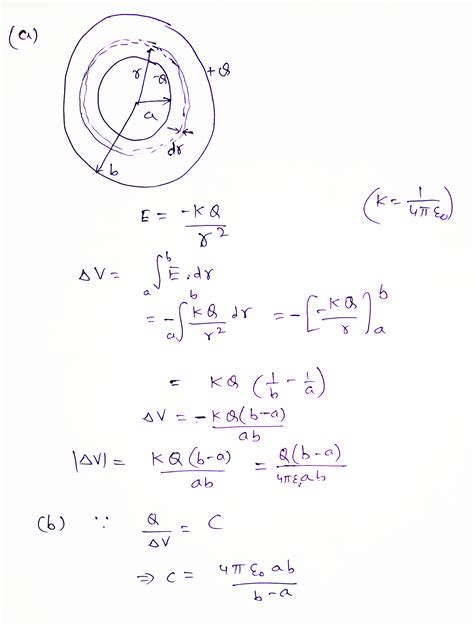 (a)
+Q
r
-Q
a
dr
b
E = -KQ / r²
(K = 1 / 4πε₀)
ΔV = ∫ₐᵇ E̅.dr
= -∫ₐᵇ KQ / r² dr = -[-KQ / r]ₐᵇ
= KQ (1/b - 1/a)
ΔV = -KQ(b-a) / ab
|ΔV| = KQ(b-a) / ab = Q(b-a) / 4πε₀ab
(b) ∵ Q / ΔV = C
⇒ C = 4πε₀ab / b-a